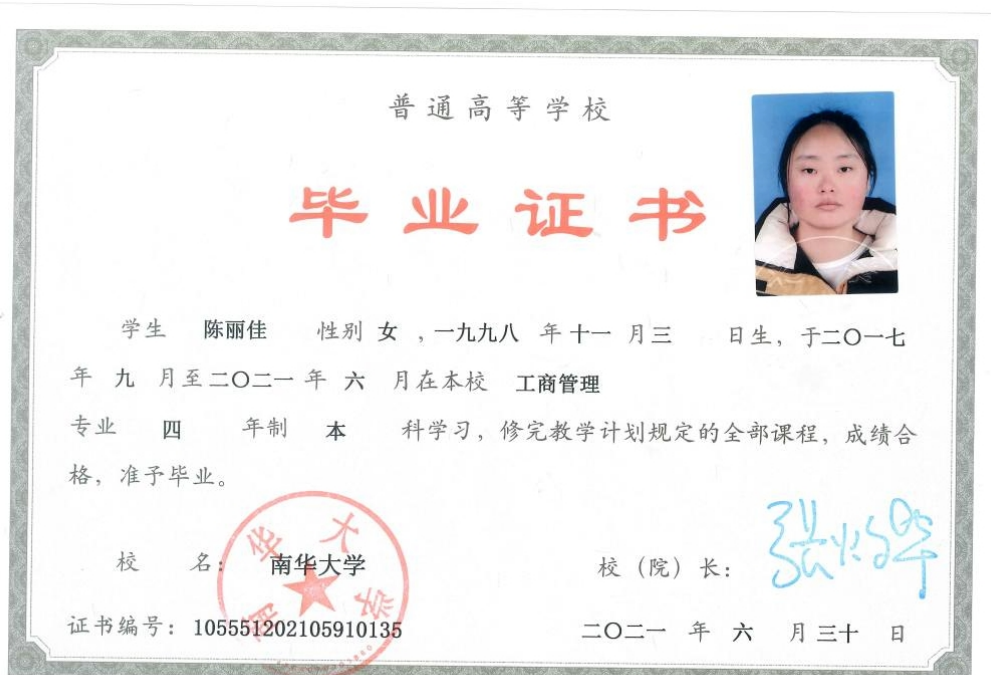 普通高等学校
毕业证书
学生 陈丽佳 性别 女 ，一九九八 年 十一 月 三 日生，于二〇一七
年 九 月至 二〇二一 年 六 月在本校 工商管理
专业 四 年制 本 科学习，修完教学计划规定的全部课程，成绩合
格，准予毕业。
校 名： 南华大学 校（院）长：
南华大学
证书编号： 105551202105910135 二〇二一 年 六 月 三十 日